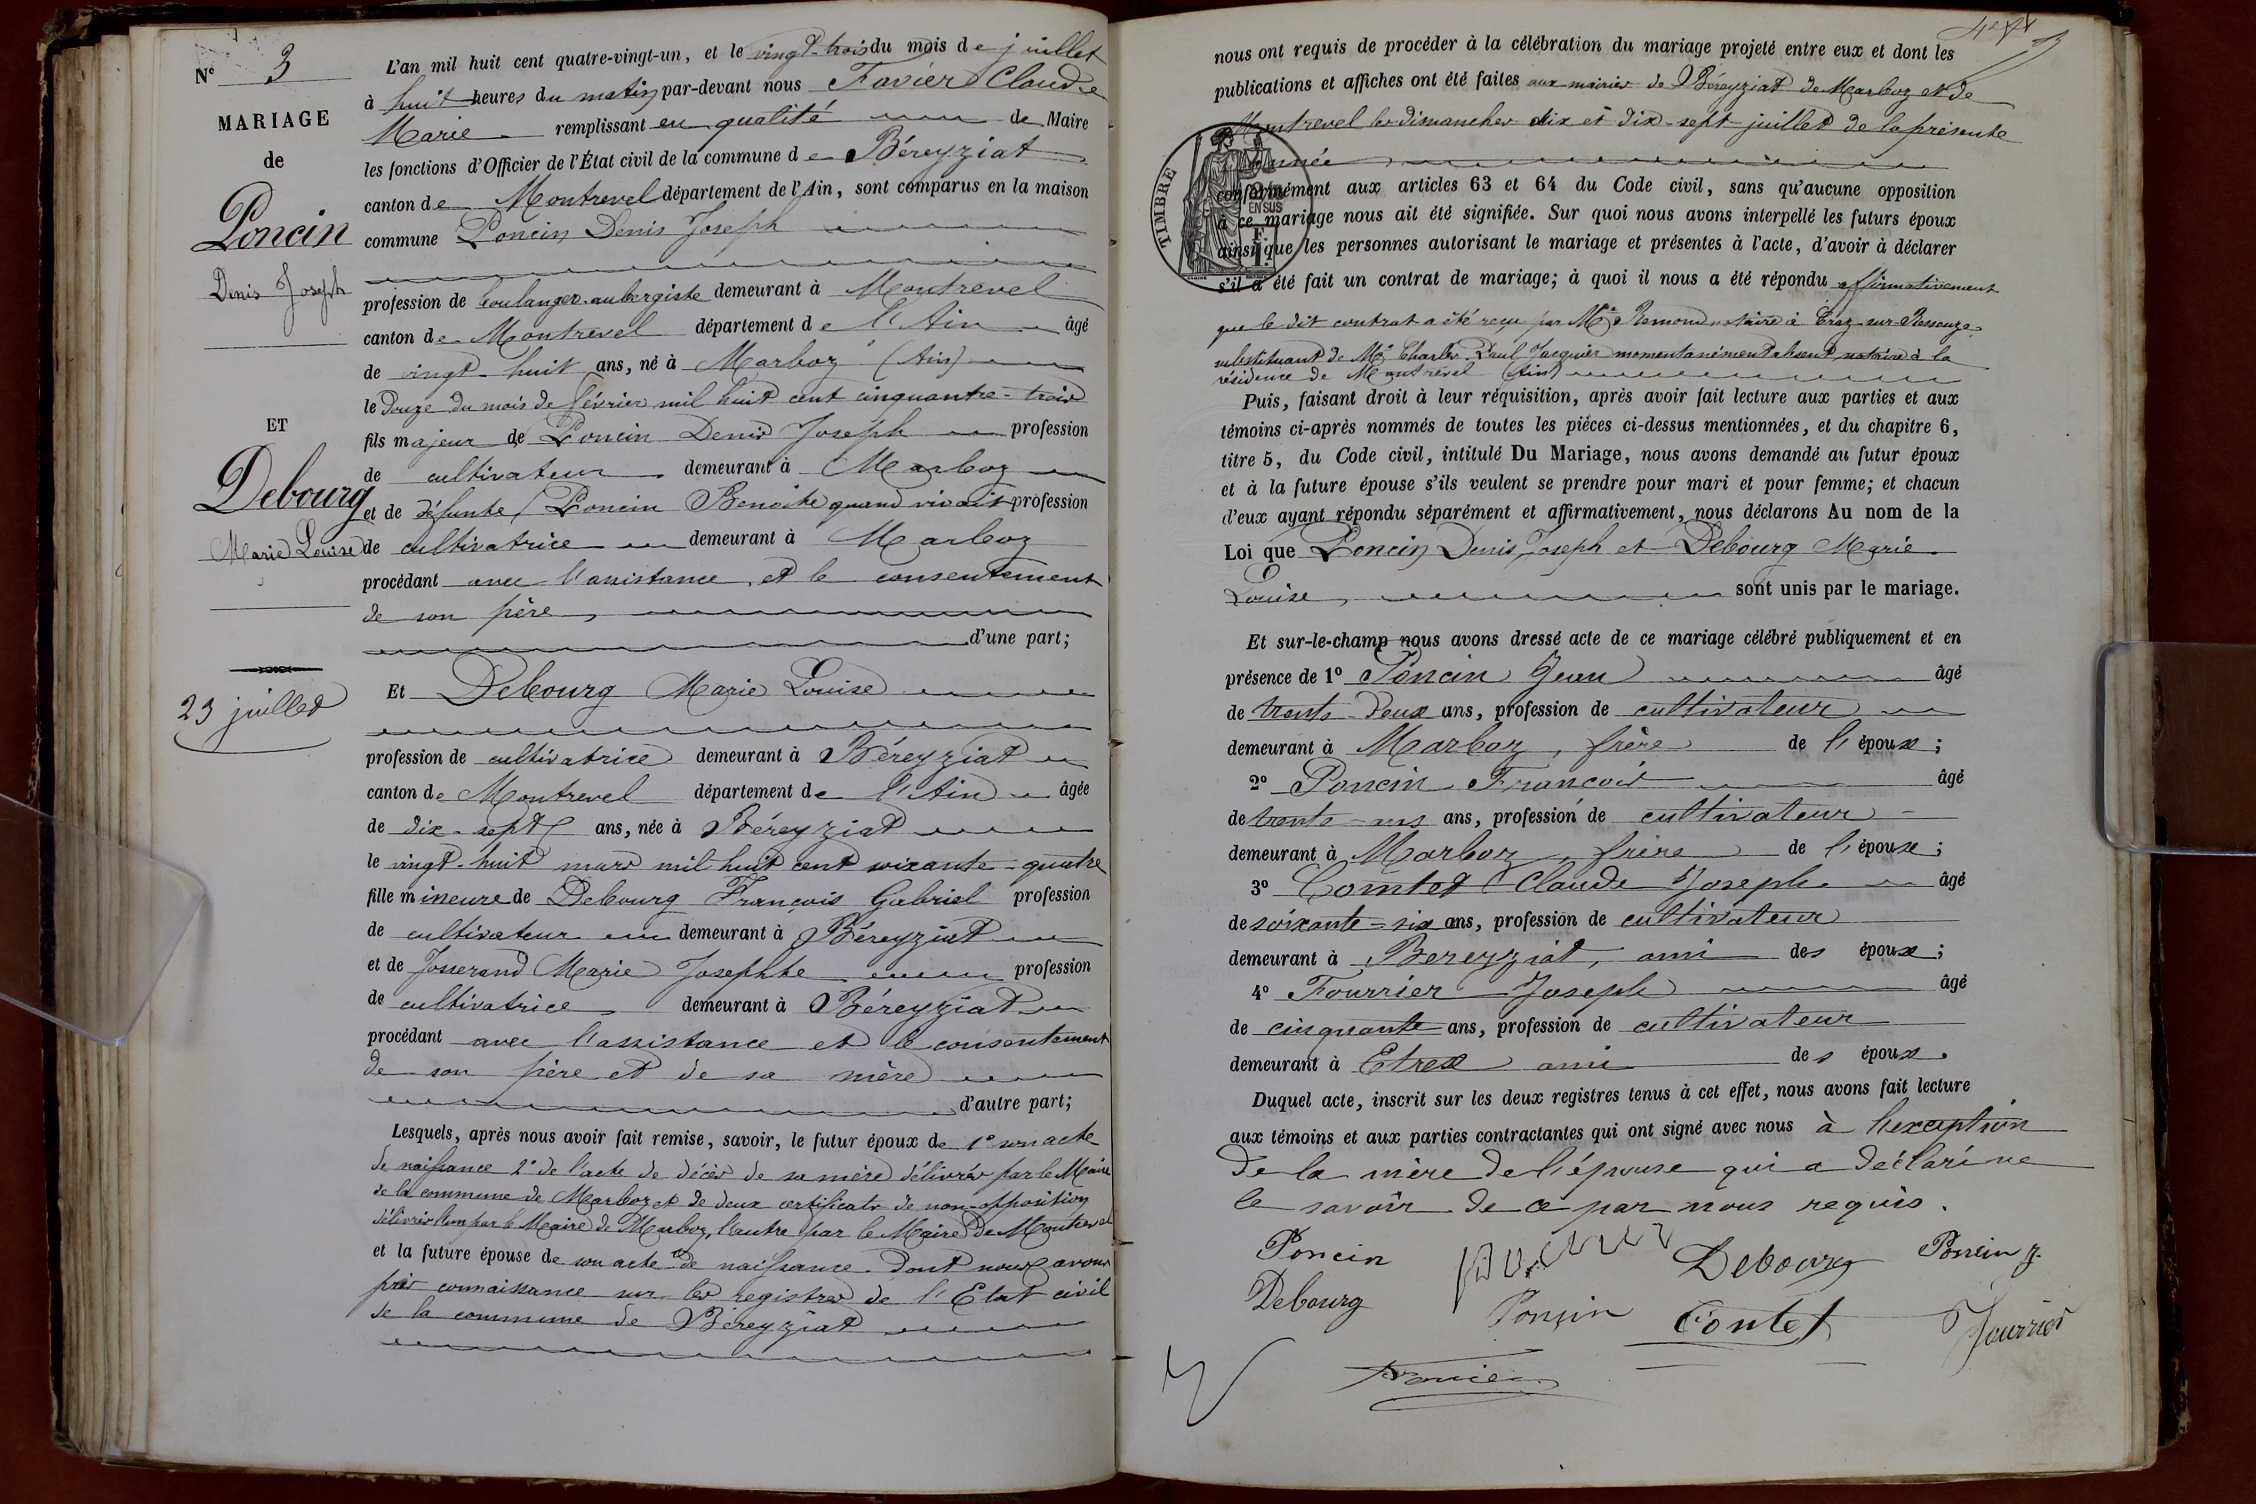 N° 3
MARIAGE
de
Poncin
Denis Joseph
ET
Debourg
Marie Louise
23 juillet
L'an mil huit cent quatre-vingt-un, et le vingt-trois du mois de juillet
à huit heures du matin par-devant nous Favier Claude
Marie remplissant en qualité de Maire
les fonctions d'Officier de l'État civil de la commune de Béreyziat
canton de Montrevel département de l'Ain, sont comparus en la maison
commune Poncin Denis Joseph
profession de boulanger-aubergiste demeurant à Montrevel
canton de Montrevel département de l'Ain âgé
de vingt-huit ans, né à Marboz (Ain)
le douze du mois de février mil huit cent cinquante-trois
fils majeur de Poncin Denis Joseph profession
de cultivateur demeurant à Marboz
et de défunte Poncin Benoite quand vivait profession
de cultivatrice demeurant à Marboz
procédant avec l'assistance et le consentement
de son père
d'une part;
Et Debourg Marie Louise
profession de cultivatrice demeurant à Béreyziat
canton de Montrevel département de l'Ain âgée
de dix-sept ans, née à Béreyziat
le vingt-huit mars mil huit cent soixante-quatre
fille mineure de Debourg François Gabriel profession
de cultivateur demeurant à Béreyziat
et de Josserand Marie Josephte profession
de cultivatrice demeurant à Béreyziat
procédant avec l'assistance et le consentement
de son père et de sa mère
d'autre part;
Lesquels, après nous avoir fait remise, savoir, le futur époux de 1° son acte
de naissance 2° de l'acte de décès de sa mère délivrés par le Maire
de la commune de Marboz et de deux certificats de non-opposition
délivrés l'un par le Maire de Marboz, l'autre par le Maire de Montrevel
et la future épouse de son acte de naissance. Dont nous avons
pris connaissance sur les registres de l'Etat civil
de la commune de Béreyziat
nous ont requis de procéder à la célébration du mariage projeté entre eux et dont les
publications et affiches ont été faites aux mairies de Béreyziat de Marboz et de
Montrevel les dimanches dix et dix-sept juillet de la présente
année
TIMBRE
EN SUS
conformément aux articles 63 et 64 du Code civil, sans qu'aucune opposition
à ce mariage nous ait été signifiée. Sur quoi nous avons interpellé les futurs époux
ainsi que les personnes autorisant le mariage et présentes à l'acte, d'avoir à déclarer
s'il a été fait un contrat de mariage; à quoi il nous a été répondu affirmativement
que le dit contrat a été reçu par Me Remond notaire à Cras-sur-Ressouze
substituant de Me Charles Paul Jacquier momentanément absent notaire à la
résidence de Montrevel (Ain)
Puis, faisant droit à leur réquisition, après avoir fait lecture aux parties et aux
témoins ci-après nommés de toutes les pièces ci-dessus mentionnées, et du chapitre 6,
titre 5, du Code civil, intitulé Du Mariage, nous avons demandé au futur époux
et à la future épouse s'ils veulent se prendre pour mari et pour femme; et chacun
d'eux ayant répondu séparément et affirmativement, nous déclarons Au nom de la
Loi que Poncin Denis Joseph et Debourg Marie
Louise, sont unis par le mariage.
Et sur-le-champ nous avons dressé acte de ce mariage célébré publiquement et en
présence de 1° Poncin Jean âgé
de trente-deux ans, profession de cultivateur
demeurant à Marboz, frère de l'époux;
2° Poncin François âgé
de trente ans, profession de cultivateur
demeurant à Marboz, frère de l'époux;
3° Comtet Claude Joseph âgé
de soixante-six ans, profession de cultivateur
demeurant à Bereyziat, ami des époux;
4° Fourrier Joseph âgé
de cinquante ans, profession de cultivateur
demeurant à Etrex ami des époux.
Duquel acte, inscrit sur les deux registres tenus à cet effet, nous avons fait lecture
aux témoins et aux parties contractantes qui ont signé avec nous à l'exception
de la mère de l'épouse qui a déclaré ne
le savoir de ce par nous requis.
Poncin Debourg Poncin J.
Debourg Poncin Contet Fourrier
Favier